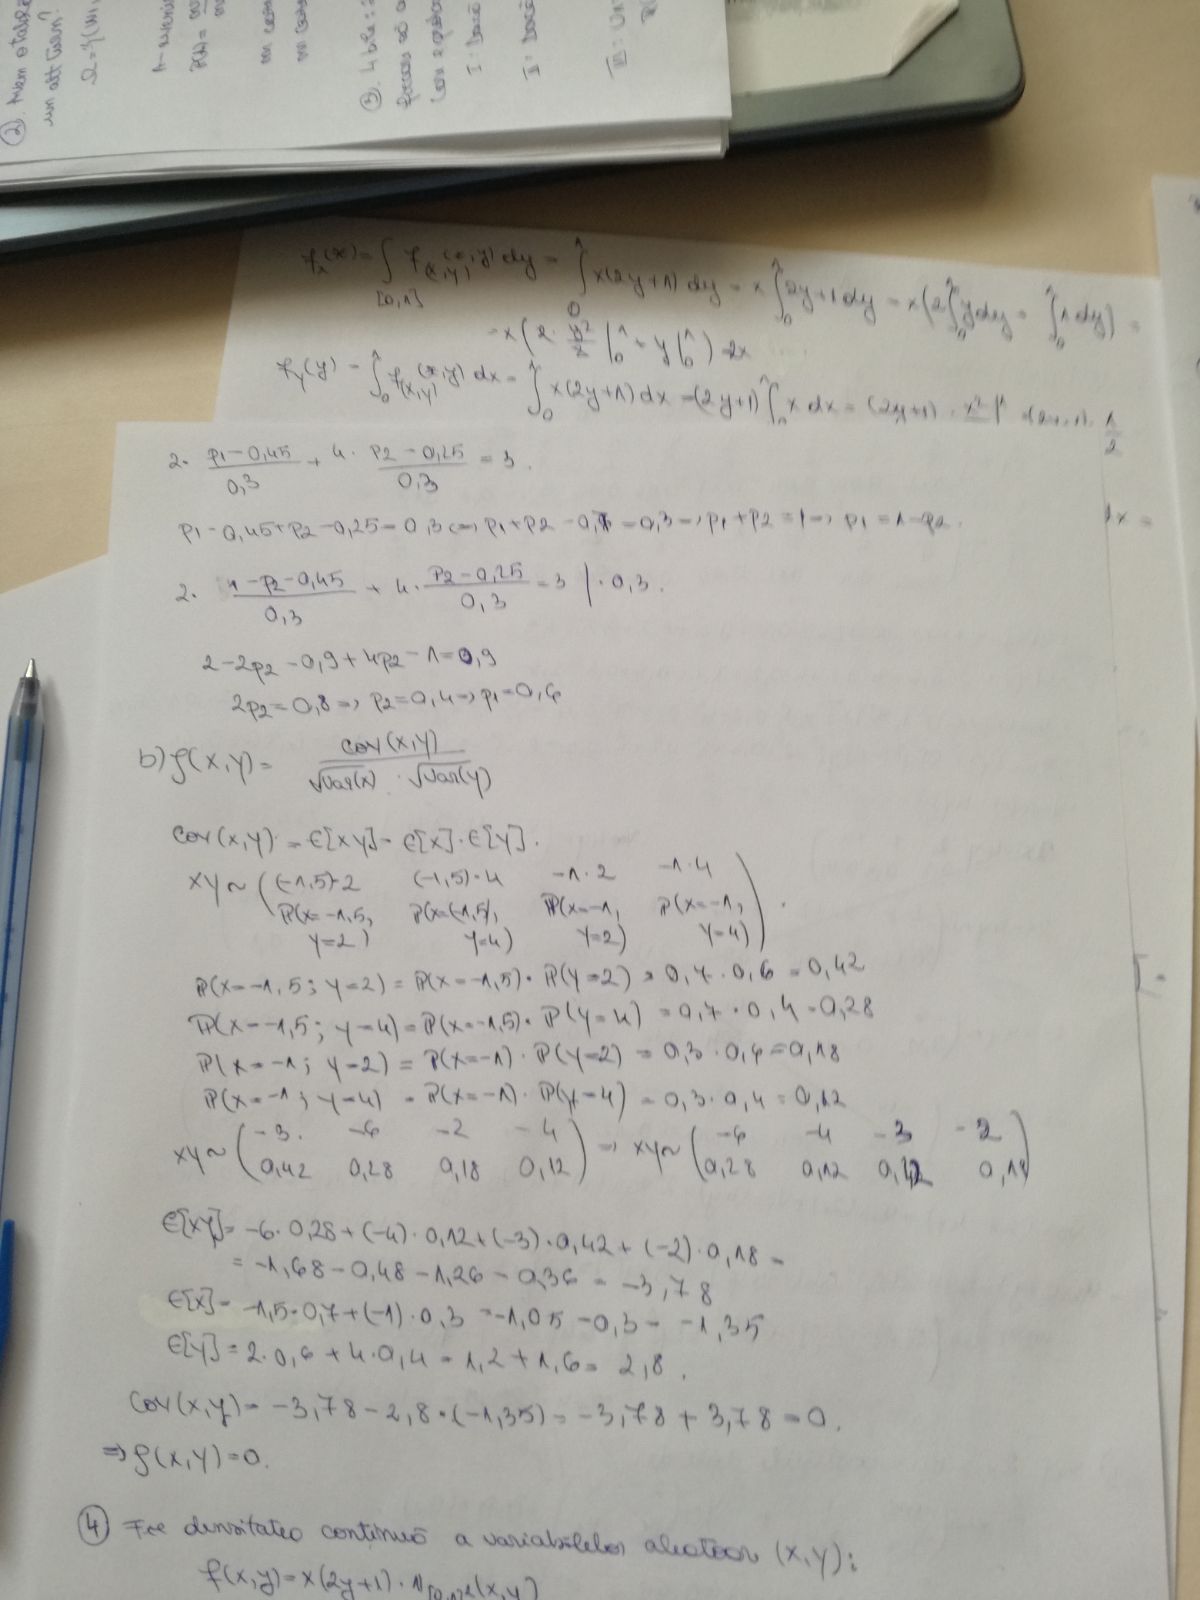 ② Avem
un
Ω =
③. 4 bile:
I: Dacă
II: Dacă
III:
f_X(x) = ∫_{[0,1]} f_{(X,Y)}(x,y) dy = ∫_0^1 x(2y+1) dy = x ∫_0^1 2y+1 dy = x(2∫_0^1 y dy = ∫_0^1 1 dy) =
= x(2 · y²/2 |_0^1 + y|_0^1) = 2x
f_Y(y) = ∫_0^1 f_{(X,Y)}(x,y) dx = ∫_0^1 x(2y+1) dx = (2y+1) ∫_0^1 x dx = (2y+1) · x²/2 |^1 = (2y+1) · 1/2
dx =
2 · (p1-0,45)/0,3 + 4 · (p2-0,25)/0,3 = 3.
p1-0,45+p2-0,25=0,3 <=> p1+p2-0,7=0,3 => p1+p2=1 => p1=1-p2.
2 · (1-p2-0,45)/0,3 + 4 · (p2-0,25)/0,3 = 3 | · 0,3.
2-2p2-0,9+4p2-1=0,9
2p2=0,8 => p2=0,4 => p1=0,6
b) ρ(X,Y) = cov(X,Y) / √Var(X) · √Var(Y)
cov(X,Y) = E[XY] - E[X]·E[Y].
XY ~ ( (-1,5)·2 (-1,5)·4 -1·2 -1·4
P(X=-1,5, P(X=(-1,5), P(X=-1, P(X=-1,
Y=2) Y=4) Y=2) Y=4) ).
P(X=-1,5; Y=2) = P(X=-1,5) · P(Y=2) = 0,7 · 0,6 = 0,42
P(X=-1,5; Y=4) = P(X=-1,5) · P(Y=4) = 0,7 · 0,4 = 0,28
P(X=-1; Y=2) = P(X=-1) · P(Y=2) = 0,3 · 0,6 = 0,18
P(X=-1; Y=4) = P(X=-1) · P(Y=4) = 0,3 · 0,4 = 0,12
XY ~ ( -3 -6 -2 -4 ) => XY ~ ( -6 -4 -3 -2 )
( 0,42 0,28 0,18 0,12 ) ( 0,28 0,12 0,42 0,18 )
E[XY] = -6·0,28+(-4)·0,12+(-3)·0,42+(-2)·0,18 =
= -1,68-0,48-1,26-0,36 = -3,78
E[X] = -1,5·0,7+(-1)·0,3 = -1,05-0,3 = -1,35
E[Y] = 2·0,6+4·0,4 = 1,2+1,6 = 2,8.
cov(X,Y) = -3,78-2,8·(-1,35) = -3,78+3,78=0.
=> ρ(X,Y)=0.
④ Fie densitatea continuă a variabilelor aleatoare (X,Y):
f(x,y)=x(2y+1)·1_{[0,1]²}(x,y)